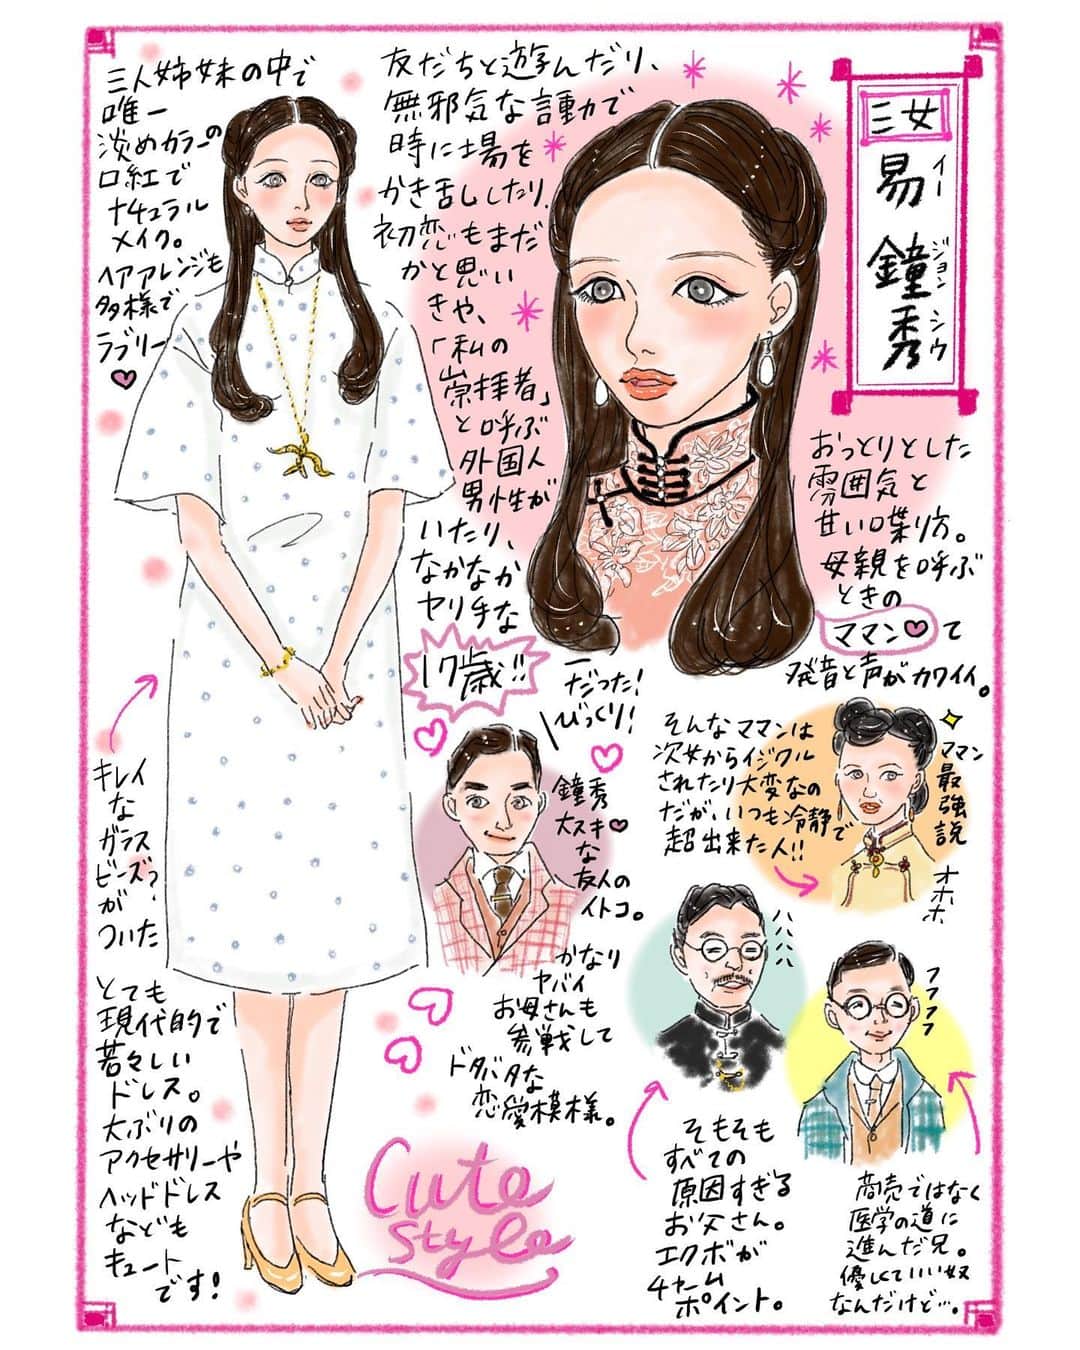 三女
易 鐘秀
イー ジョン シウ
三人姉妹の中で
唯一
淡めカラーの
口紅で
ナチュラル
メイク。
ヘアアレンジも
多様で
ラブリー♥
友だちと遊んだり、
無邪気な言動で
時に場を
かき乱ししたり、
初恋もまだ
かと思い
きや、
「私の
崇拝者」
と呼ぶ
外国人
男性が
いたり、
なかなか
ヤリ手な
17歳!!
だった!
びっくり!
おっとりとした
雰囲気と
甘い喋り方。
母親を呼ぶ
ときの
ママン♥て
発音と声がカワイイ。
そんなママンは
次女からイジワル
されたり大変なの
だが、いつも冷静で
超出来た人!!
ママン
最強説
オホホ
鐘秀
大スキ♥
な
友人の
イトコ。
かなり
ヤバイ
お母さんも
参戦して
ドタバタな
恋愛模様。
ハハハハ
そもそも
すべての
原因すぎる
お父さん。
エクボが
チャーム
ポイント。
フフフフ
商売ではなく
医学の道に
進んだ兄。
優しくていい奴
なんだけど…。
キレイ
な
ガラス
ビーズ?
が
ついた
とても
現代的で
若々しい
ドレス。
大ぶりの
アクセサリーや
ヘッドドレス
なども
キュート
です!
Cute
Style